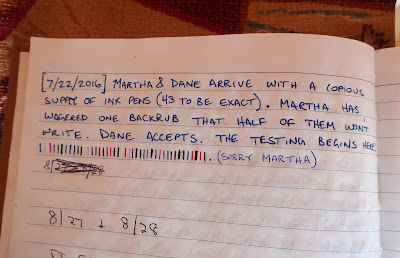 [7/22/2016] MARTHA & DANE ARRIVE WITH A COPIOUS
SUPPLY OF INK PENS (43 TO BE EXACT). MARTHA HAS
WAGERED ONE BACKRUB THAT HALF OF THEM WON'T
WRITE. DANE ACCEPTS. THE TESTING BEGINS HERE
. (SORRY, MARTHA)
8/27
8/27 + 8/28